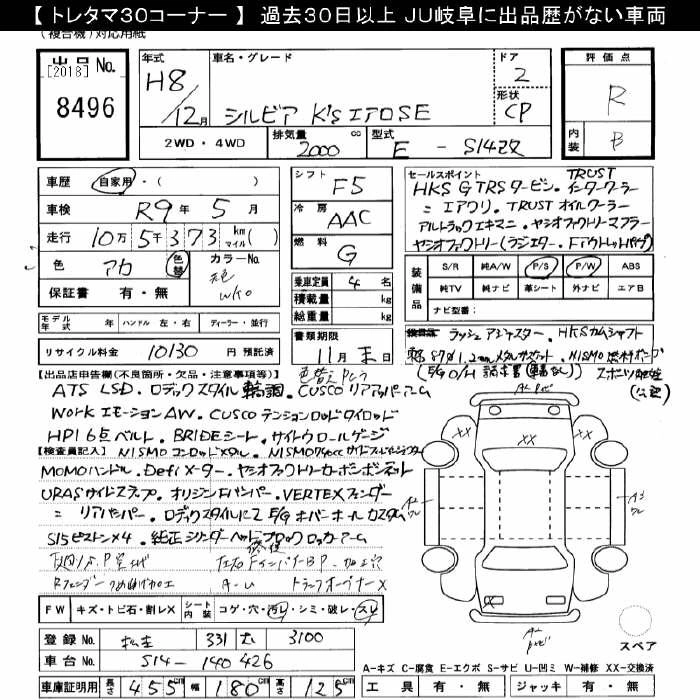 【トレタマ30コーナー】 過去30日以上 JU岐阜に出品歴がない車両
(複合機)対応用紙
出品No.
[2018]
8496
年式 H8/12月
車名・グレード シルビア K'sエアロSE
ドア 2
形状 CP
評価点 R
内装 B
2WD・4WD 排気量 2000 cc 型式 E - S14改
車歴 自家用・( )
車検 R9年5月
走行 10万5千373 km マイル( )
色 アカ 色替 カラーNo. WK0
保証書 有・無
シフト F5
冷房 AAC
燃料 G
乗車定員 4名
積載量 kg
総重量 kg
セールスポイント TRUST
HKS GTRSタービン.インタークーラー
= エアクリ.TRUST オイルクーラー
アルトラックエキマニ.ヤシオファクトリーマフラー
ヤシオファクトリー(ラジエター.Fアウトレットパイプ)
装備品 S/R 純A/W P/S P/W ABS
純TV 純ナビ 革シート 外ナビ エアB
ナビ型番:
モデル年式 年 ハンドル 左・右 ディーラー・並行
リサイクル料金 10130 円 預託済
書類期限 11月末日
ラッシュアジャスター.HKSカムシャフト
1.2mmメタルガスケット.NISMO燃料ポンプ
【出品店申告欄(不良箇所・欠品・注意事項等)】
ATS LSD.ロデックスタイル 輪調.CUSCOリアアッパーアーム
WORK エモーションAW.CUSCOテンションロッドタイロッド
HPI 6点ベルト.BRIDEシート.サイトウロールゲージ
【検査員記入】 NISMOコンロッドメタル.NISMO740cc
MOMOハンドル.Defiメーター.ヤシオファクトリーカーボンボンネット
URASサイドステップ.オリジンFバンパー.VERTEXフェンダー
= リアバンパー.ロデックスタイルにてE/Gオーバーホールカスタム
S15ピストン×4.純正シリンダーヘッドブロックロッカーアーム
A-U
トランクオープナーX
FW キズ・トビ石・割レX シート内装 コゲ・穴・汚レ・シミ・破レ・スレ
登録No. 松本 331 た 3100
車台No. S14 - 140426
車庫証明用 長さ 455 幅 180cm 高さ 125
XX
XX
XX
X
スペア
A-キズ C-腐食 E-エクボ S-サビ U-凹ミ W-補修 XX-交換済
工具 有・無 ジャッキ 有・無